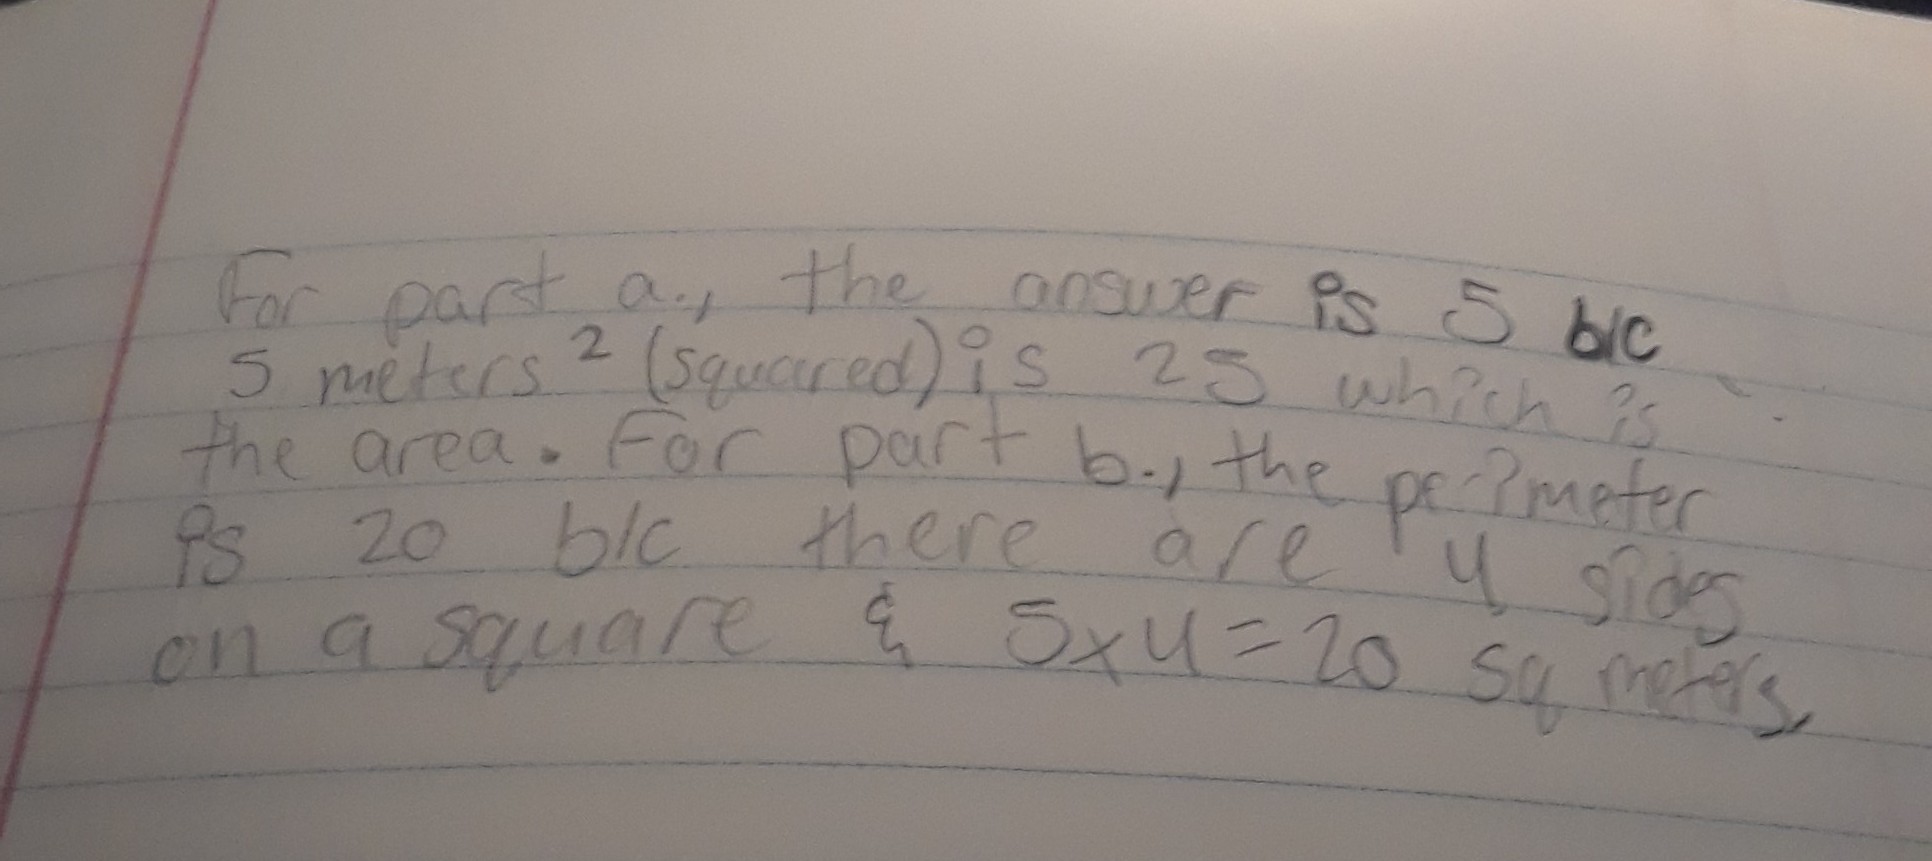 For part a., the answer is 5 b/c
5 meters ² (squared) is 25 which is
the area. For part b., the perimeter
is 20 b/c there are 4 sides
on a square & 5x4=20 sq meters.